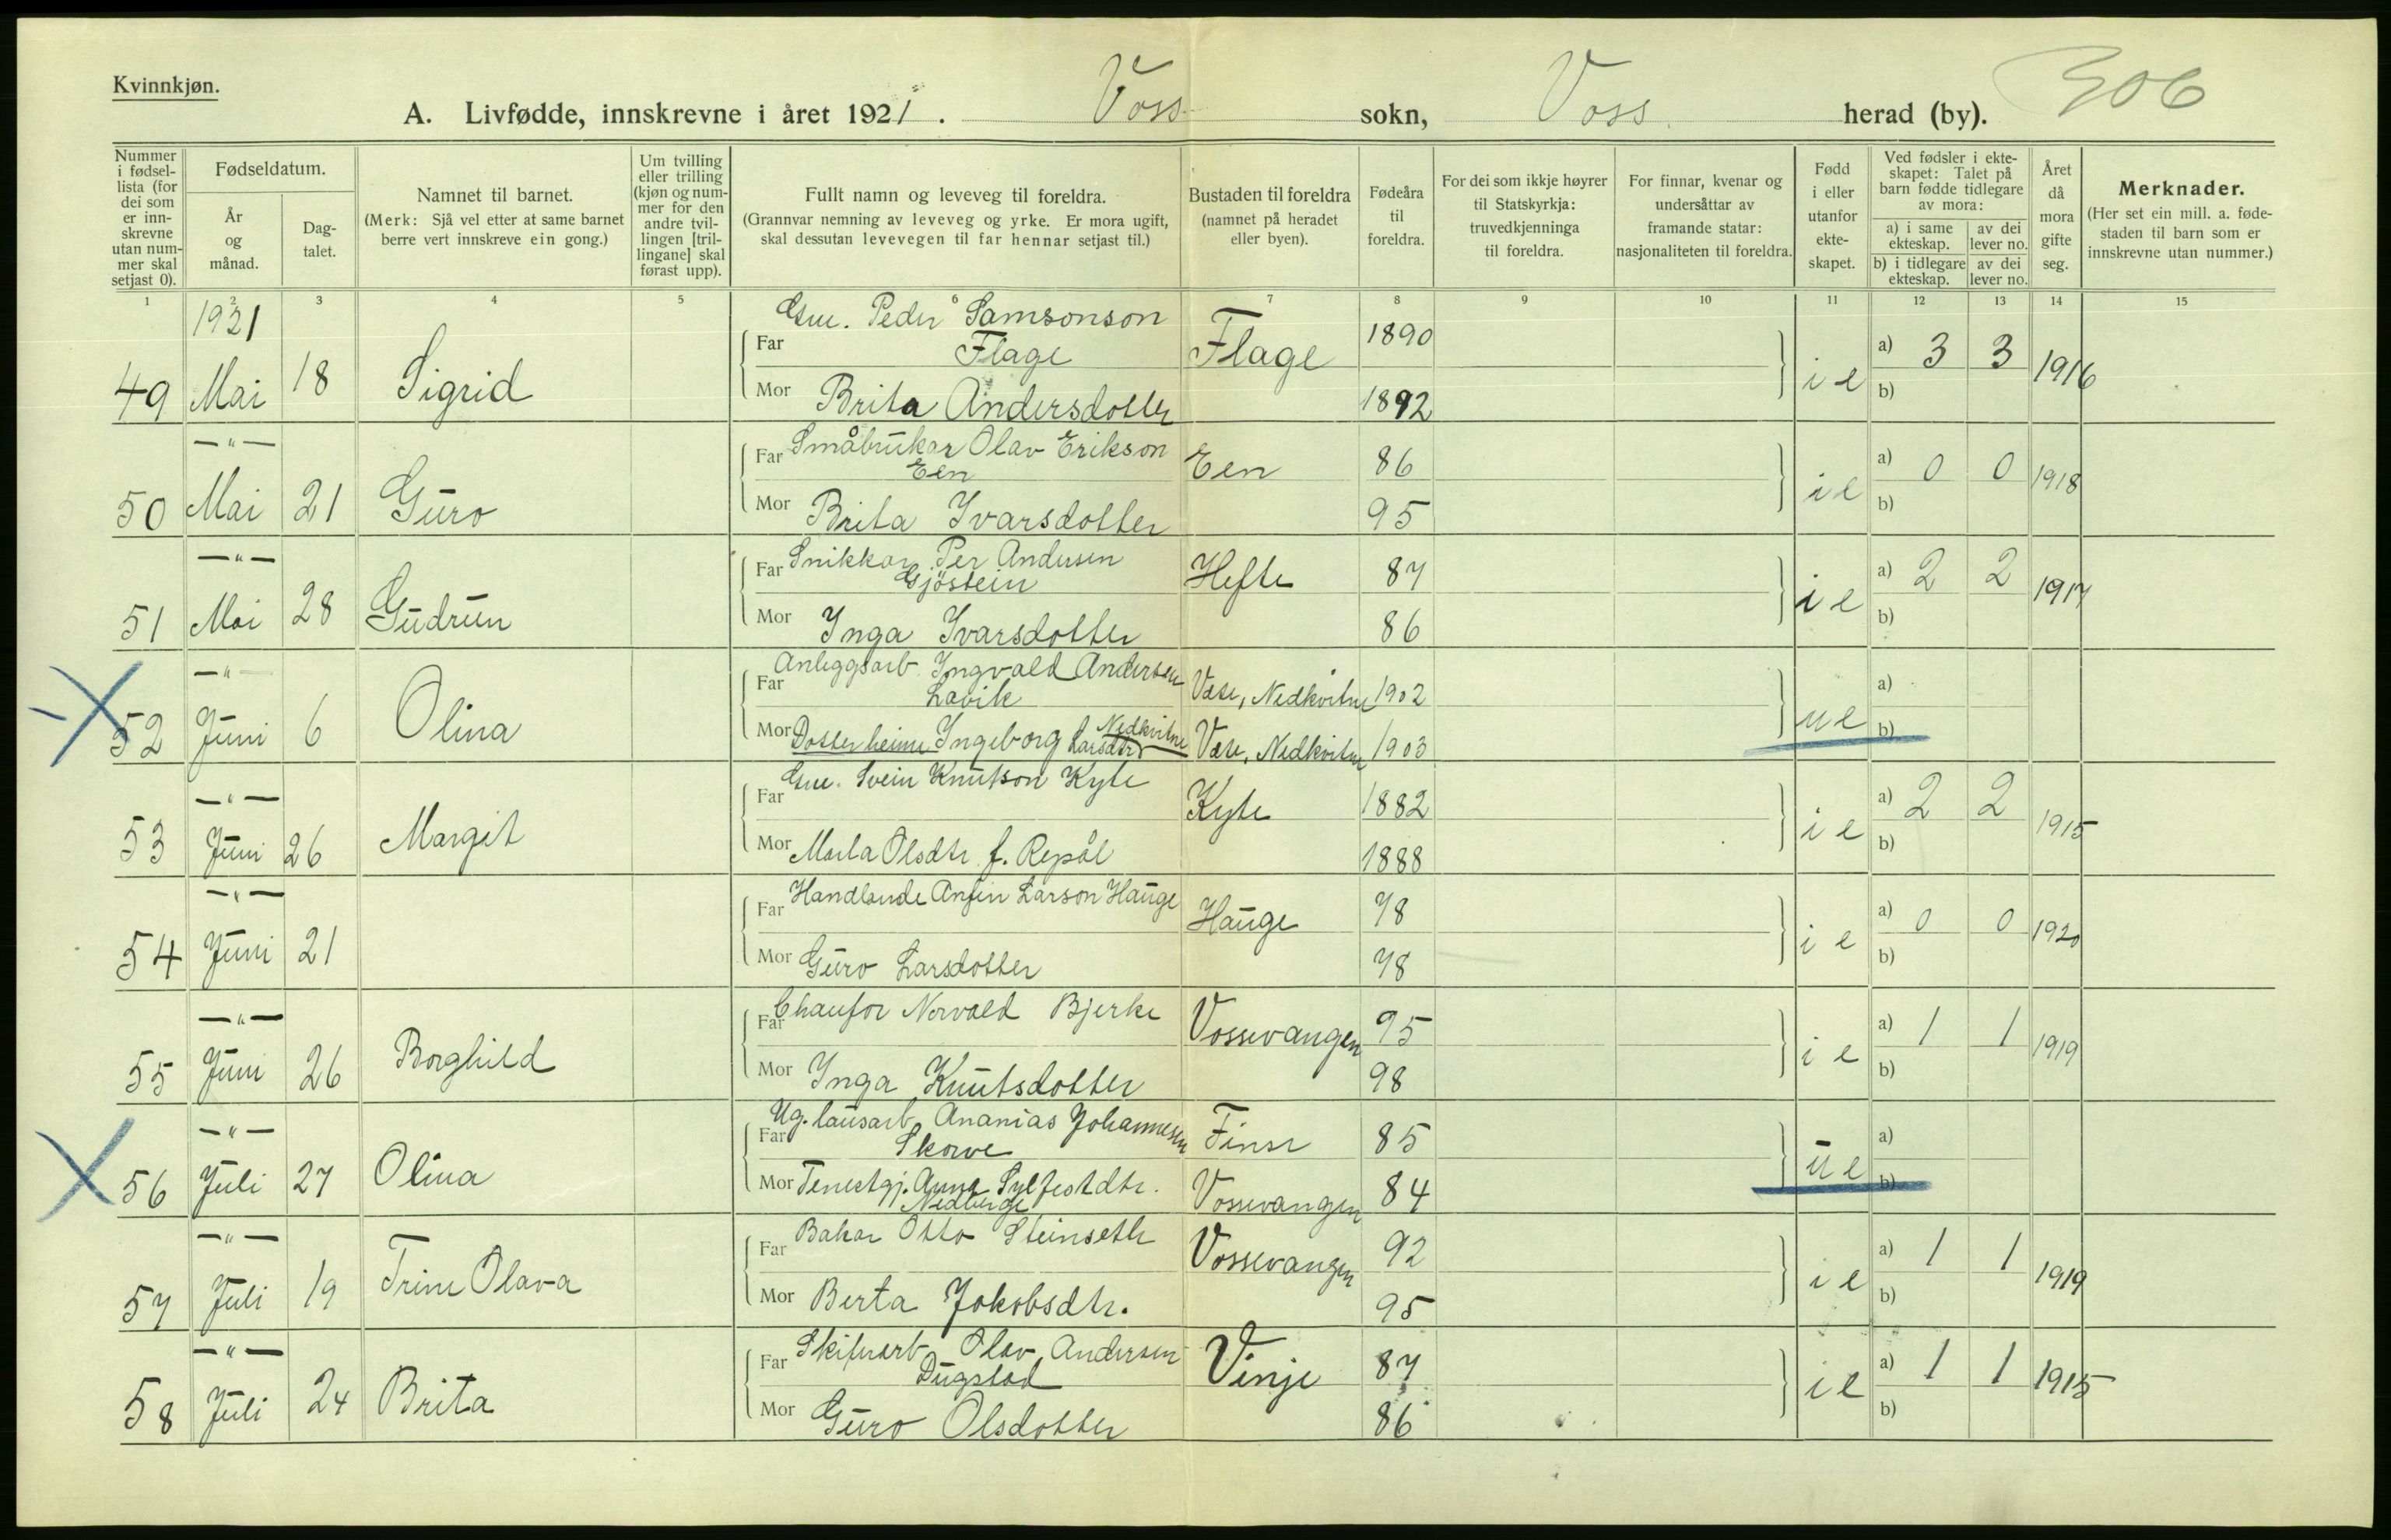 Kvinnkjøn.
306
A. Livfødde, innskrevne i året 1921. Voss sokn, Voss herad (by).
Nummer i fødsel-lista (for dei som er inn-skrevne utan num-mer skal setjast 0).
Fødseldatum.
År og månad.
Dag-talet.
Namnet til barnet.
(Merk: Sjå vel etter at same barnet berre vert innskreve ein gong.)
Um tvilling eller trilling (kjøn og num-mer for den andre tvil-lingen [tril-lingane] skal førast upp).
Fullt namn og leveveg til foreldra.
(Grannvar nemning av leveveg og yrke. Er mora ugift, skal dessutan levevegen til far hennar setjast til.)
Bustaden til foreldra
(namnet på heradet eller byen).
Fødeåra til foreldra.
For dei som ikkje høyrer til Statskyrkja: truvedkjenninga til foreldra.
For finnar, kvenar og undersåttar av framande statar: nasjonaliteten til foreldra.
Fødd i eller utanfor ekte-skapet.
Ved fødsler i ekte-skapet: Talet på barn fødde tidlegare av mora:
a) i same ekteskap. av dei lever no.
b) i tidlegare ekteskap. av dei lever no.
Året då mora gifte seg.
Merknader.
(Her set ein mill. a. føde-staden til barn som er innskrevne utan nummer.)
1 2 3 4 5 6 7 8 9 10 11 12 13 14 15
1921
49 Mai 18 Sigrid
Far Gm. Peder Samsonson
Flage Flage 1890
Mor Brita Andersdotter 1892
i e a) 3 3 1916
b)
—"—
50 Mai 21 Guro
Far Småbrukar Olav Erikson
Een Een 86
Mor Brita Ivarsdotter 95
i e a) 0 0 1918
b)
—"—
51 Mai 28 Gudrun
Far Snikkar Per Andersen
Gjöstein Hefte 87
Mor Inga Ivarsdotter 86
i e a) 2 2 1917
b)
—"—
52 Juni 6 Olina
Far Anleggsarb. Ingvald Andersen
Lavik Væse, Nedkvitne 1902
Mor Dotter heime Ingeborg Larsdtr Nedkvitne Væse, Nedkvitne 1903
u e a)
b)
—"—
53 Juni 26 Margit
Far Gm. Svein Knutson Kyte Kyte 1882
Mor Marta Olsdtr f. Repål 1888
i e a) 2 2 1915
b)
—"—
54 Juni 21
Far Handlande Anfin Larson Hauge Hauge 78
Mor Guro Larsdotter 78
i e a) 0 0 1920
b)
—"—
55 Juni 26 Borghild
Far Chaufør Norvald Bjerke Vossevangen 95
Mor Inga Knutsdotter 98
i e a) 1 1 1919
b)
—"—
56 Juli 27 Olina
Far Ug. lausarb. Ananias Johannesen
Skorve Finse 85
Mor Tenestgj. Anna Sylfestdtr. Vossevangen 84
u e a)
b)
—"—
57 Juli 19 Trine Olava
Far Bakar Otto Steinseth Vossevangen 92
Mor Berta Jokobsdtr. 95
i e a) 1 1 1919
b)
—"—
58 Juli 24 Brita
Far Skiferarb. Olav Andersen
Dugstad Vinje 87
Mor Guro Olsdotter 86
i e a) 1 1 1915
b)